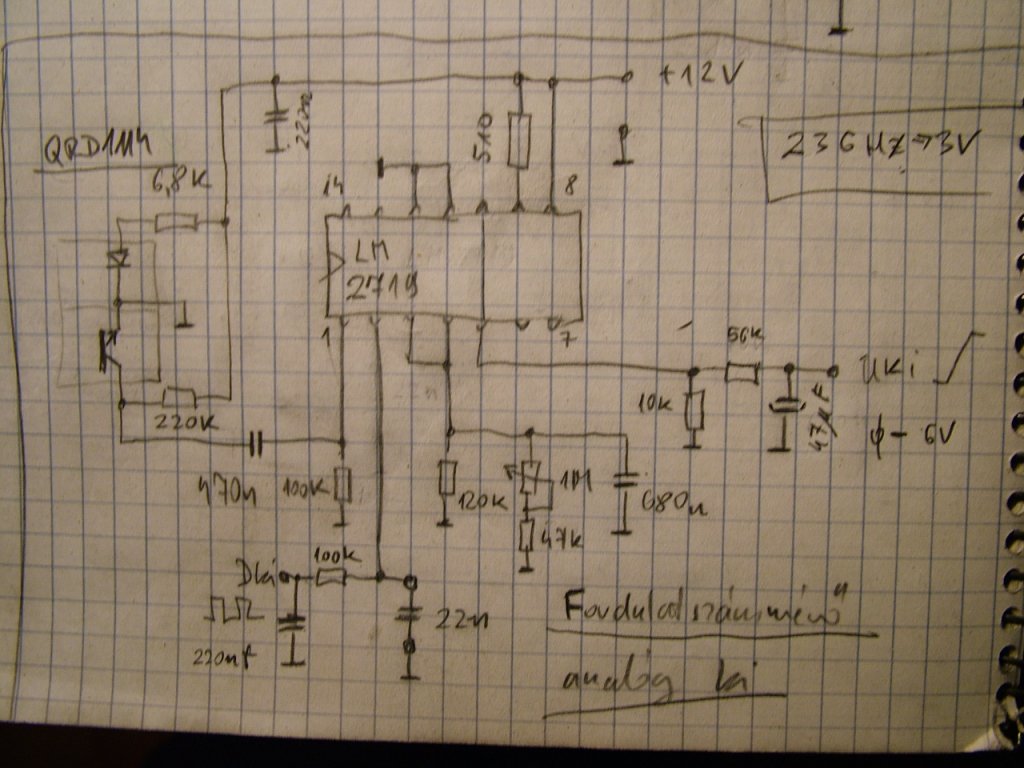 +12V
220n
510
236HZ→3V
QRD1114
6,8K
14
8
LM
2719
1
7
56K
Uki
10K
47µF
ϕ- 6V
220K
470n
100K
120K
1M
680n
47K
100K
Dki
22n
220nF
Fordulatszámmérő
analóg ki